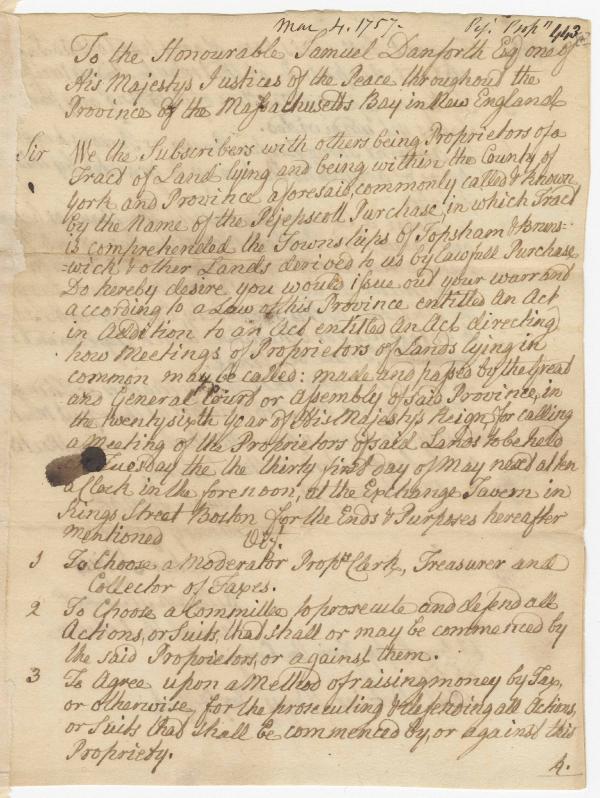 Mar 4. 1757- Pej. Propn 443
To the Honourable Samuel Danforth Esq one of
His Majestys Justices of the Peace throughout the
Province of the Massachusetts Bay in New England
Sir We the Subscribers with others being Proprietors of a
Tract of Land lying and being within the County of
York and Province aforesaid, commonly called & known
by the Name of the Pejepscott Purchase, in which Tract
is comprehended the Townships of Topsham & Bruns=
=wick & other Lands derived to us by Lawfull Purchase
Do hereby desire you would issue out your warrand
according to a Law of this Province entitled An Act
in Addition to an Act entitled An Act directing
how Meetings of Proprietors of Lands lying in
common may be called: made and passed by the Great
and General Court or Assembly of said Province, in
the twenty sixth Year of His Majestys Reign, for calling
a Meeting of the Proprietors of said Lands to be held
Tuesday the the thirty first day of May next at ten
a Clock in the forenoon, at the Exchange Tavern in
Kings Street Boston for the Ends & Purposes hereafter
mentioned Vizt
1 To Choose a Moderator Proprs Clerk, Treasurer and
Collector of Taxes.
2 To Choose a Committee to prosecute and defend all
Actions, or Suits, that shall or may be commenced by
the said Proprietors, or against them.
3 To Agree upon a Method of raising money by Tax,
or otherwise, for the prosecuting & defending all Actions,
or Suits that shall be commenced by, or against this
Propriety.
4.